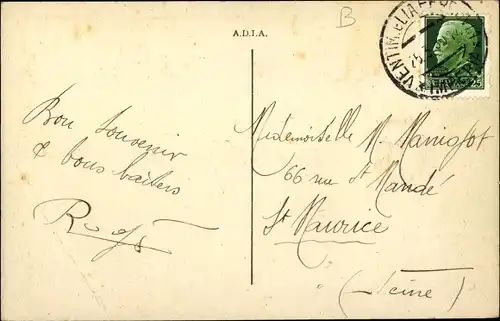 B
A.D.I.A.
VENTIMIGLIA
25
Bon souvenir
& bons baisers
Mademoiselle M.
66 rue St Mandé
St Maurice
(Seine)